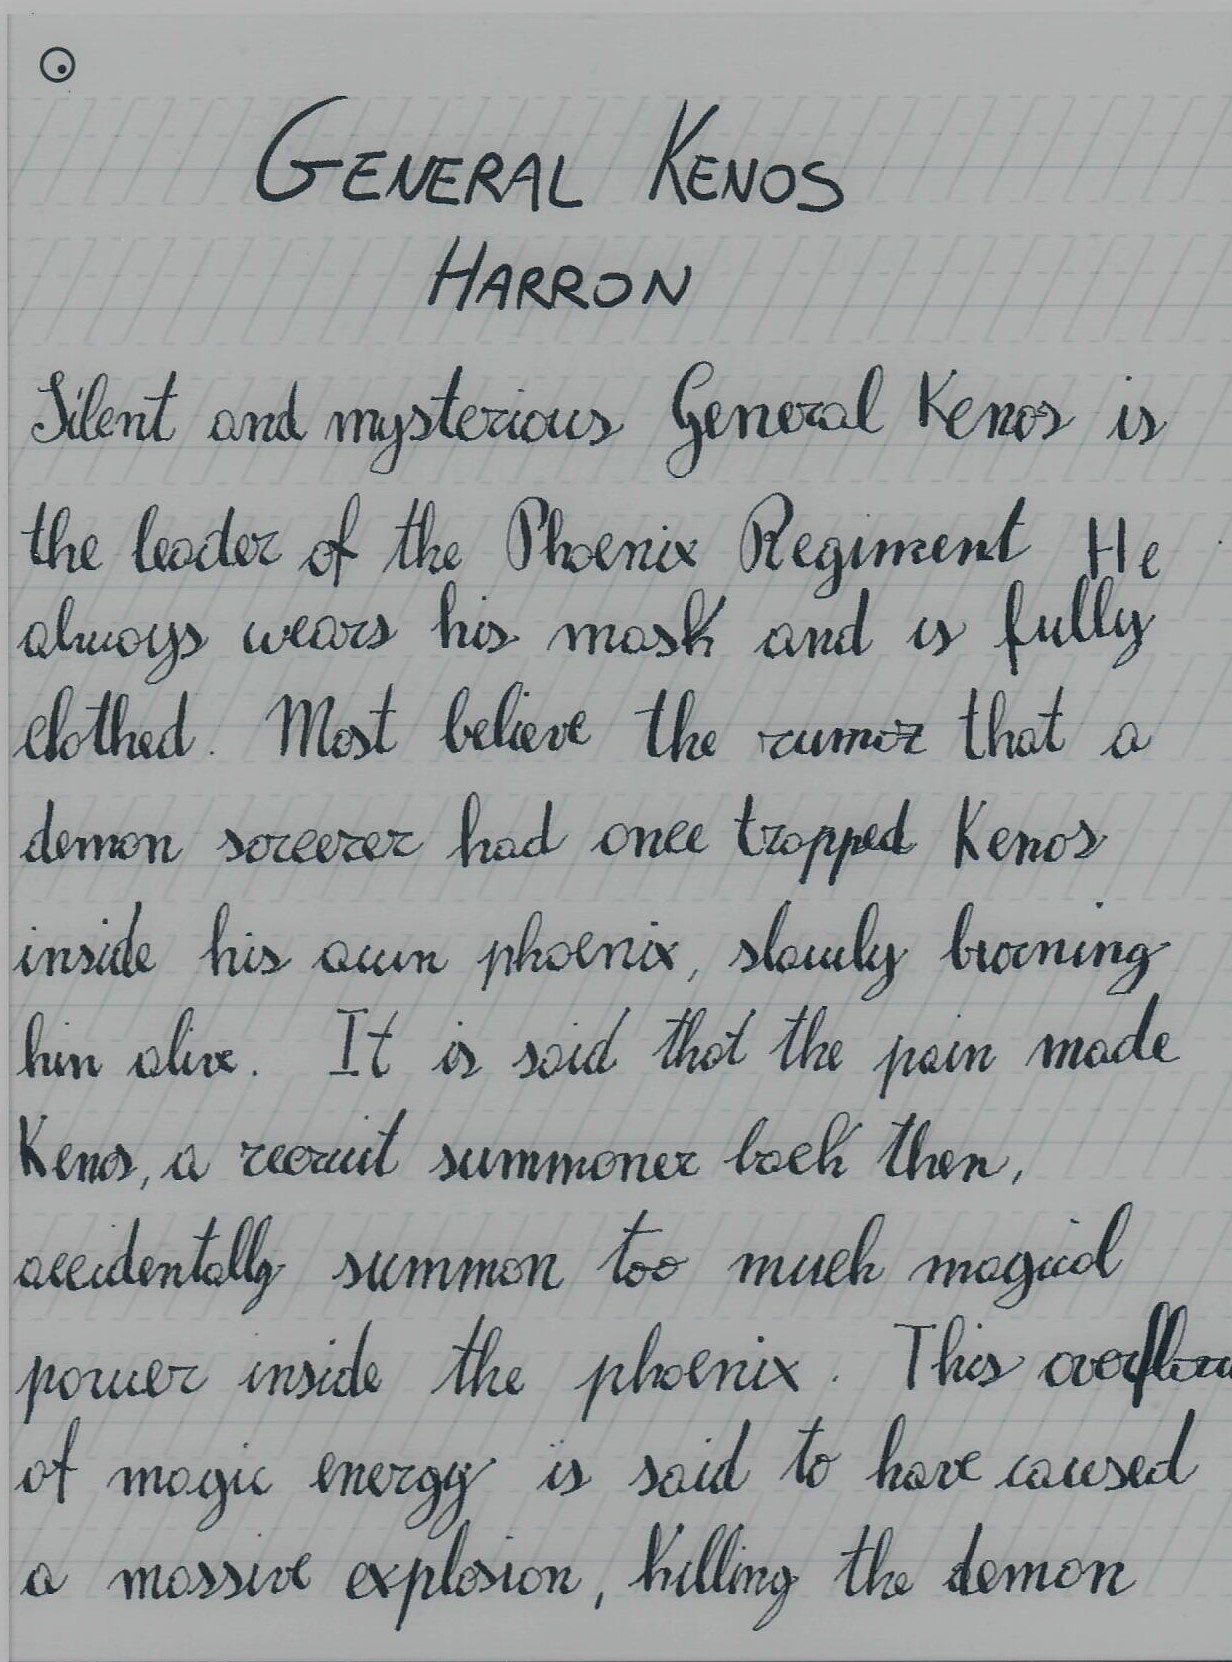 GENERAL KENOS
HARRON
Silent and mysterious General Kenos is
the leader of the Phoenix Regiment He
always wears his mask and is fully
clothed. Most believe the rumor that a
demon sorcerer had once trapped Kenos
inside his own phoenix, slowly burning
him alive. It is said that the pain made
Kenos, a recruit summoner back then,
accidentally summon too much magical
power inside the phoenix. This overflow
of magic energy is said to have caused
a massive explosion, killing the demon